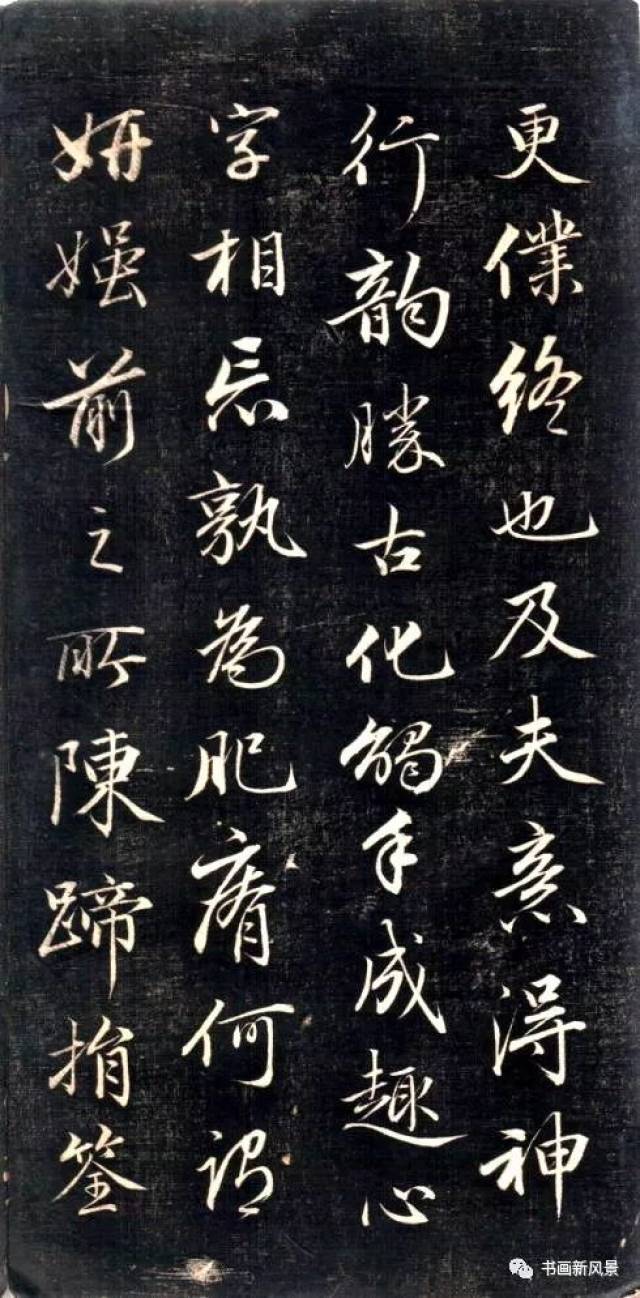 更僕終也及夫意得神
行韻勝古化觸手成趣心
字相忘孰為肥瘠何謂
妍媸前之所陳蹄捐筌
书画新风景